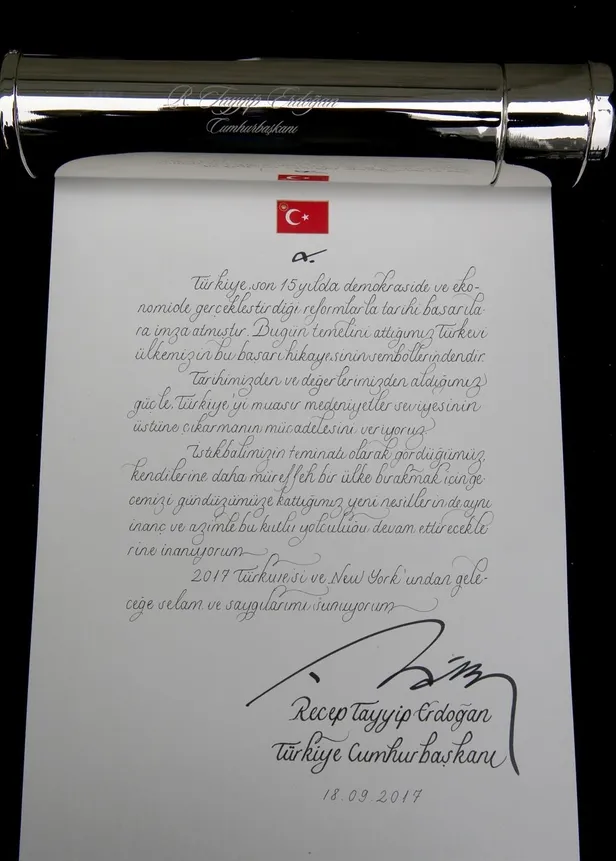 R. Tayyip Erdoğan
Cumhurbaşkanı
Türkiye, son 15 yılda demokraside ve eko-
nomide gerçekleştirdiği reformlarla tarihi başarıla-
ra imza atmıştır. Bugün temelini attığımız Türkevi
ülkemizin bu başarı hikayesinin sembollerindendir.
Tarihimizden ve değerlerimizden aldığımız
güçle, Türkiye'yi muasır medeniyetler seviyesinin
üstüne çıkarmanın mücadelesini veriyoruz
İstikbalimizin teminatı olarak gördüğümüz
kendilerine daha müreffeh bir ülke bırakmak için ge
cemizi gündüzümüze kattığımız yeni nesillerin de aynı
inanç ve azimle bu kutlu yolculuğu devam ettirecekle
rine inanıyorum
2017 Türkiyesi ve New York'undan gele-
ceğe selam ve saygılarımı sunuyorum
Recep Tayyip Erdoğan
Türkiye Cumhurbaşkanı
18.09.2017